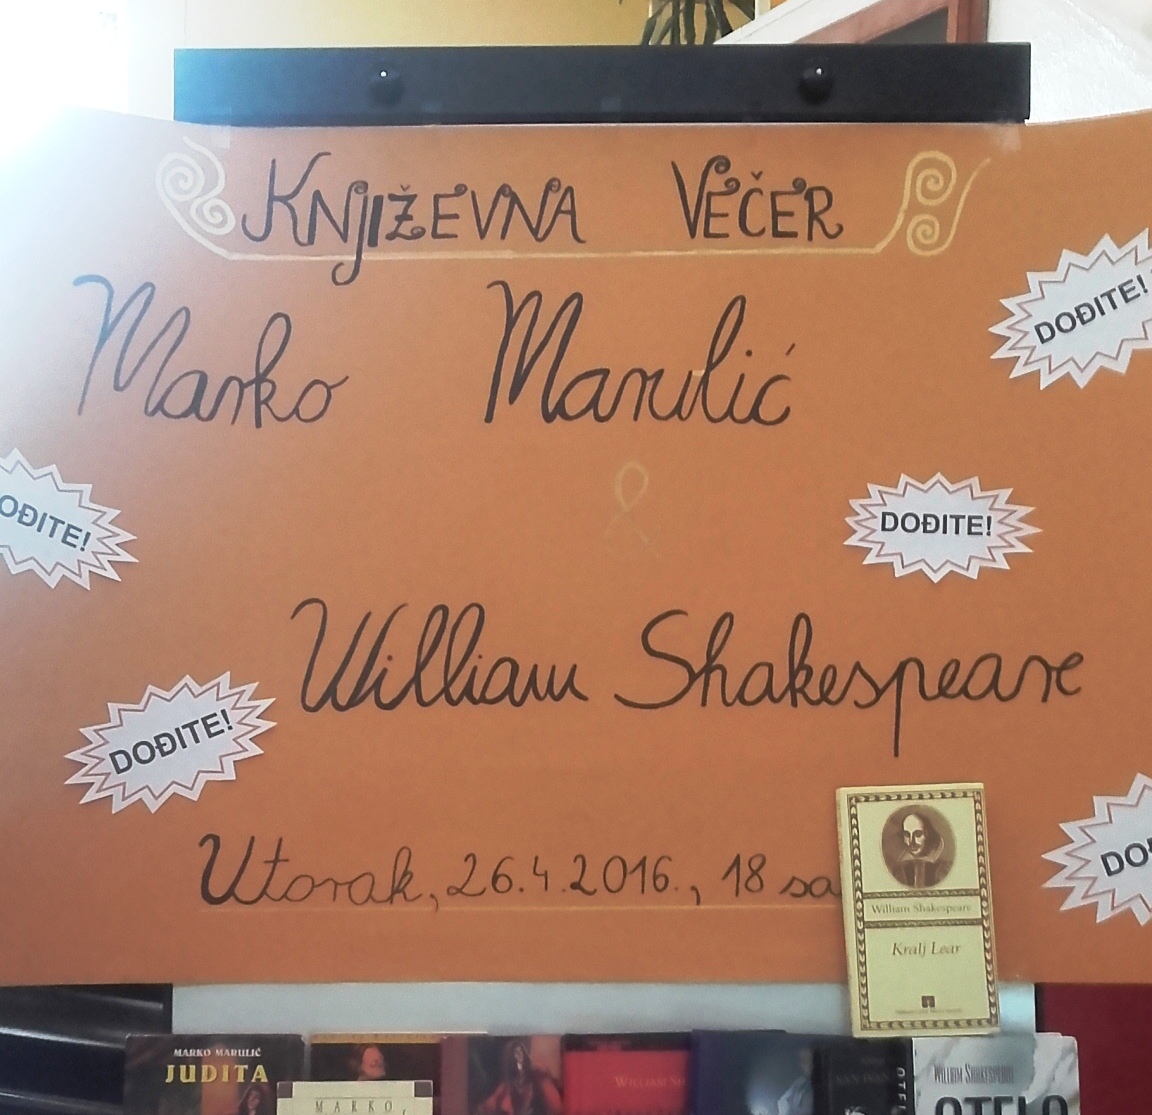 KNJIŽEVNA VEČER
Marko Marulić
&
William Shakespeare
Utorak, 26.4.2016., 18 sa
DOĐITE!
OĐITE!
DOĐITE!
DOĐITE!
DO
William Shakespeare
Kralj Lear
MARKO MARULIĆ
JUDITA
MARKO,
WILLIAM
WILLIAM SHAKESPEARE
OTELO